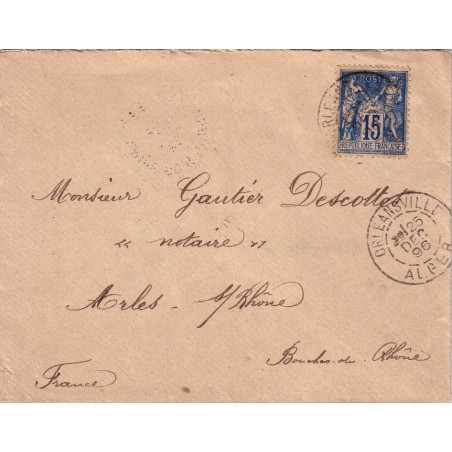 POSTE
15
REPUBLIQUE FRANÇAISE
Monsieur Gautier Descottes
« notaire »
Arles - s/Rhône
Bouches-du-Rhône
France
ORLEANSVILLE
25
DEC
96
ALGER